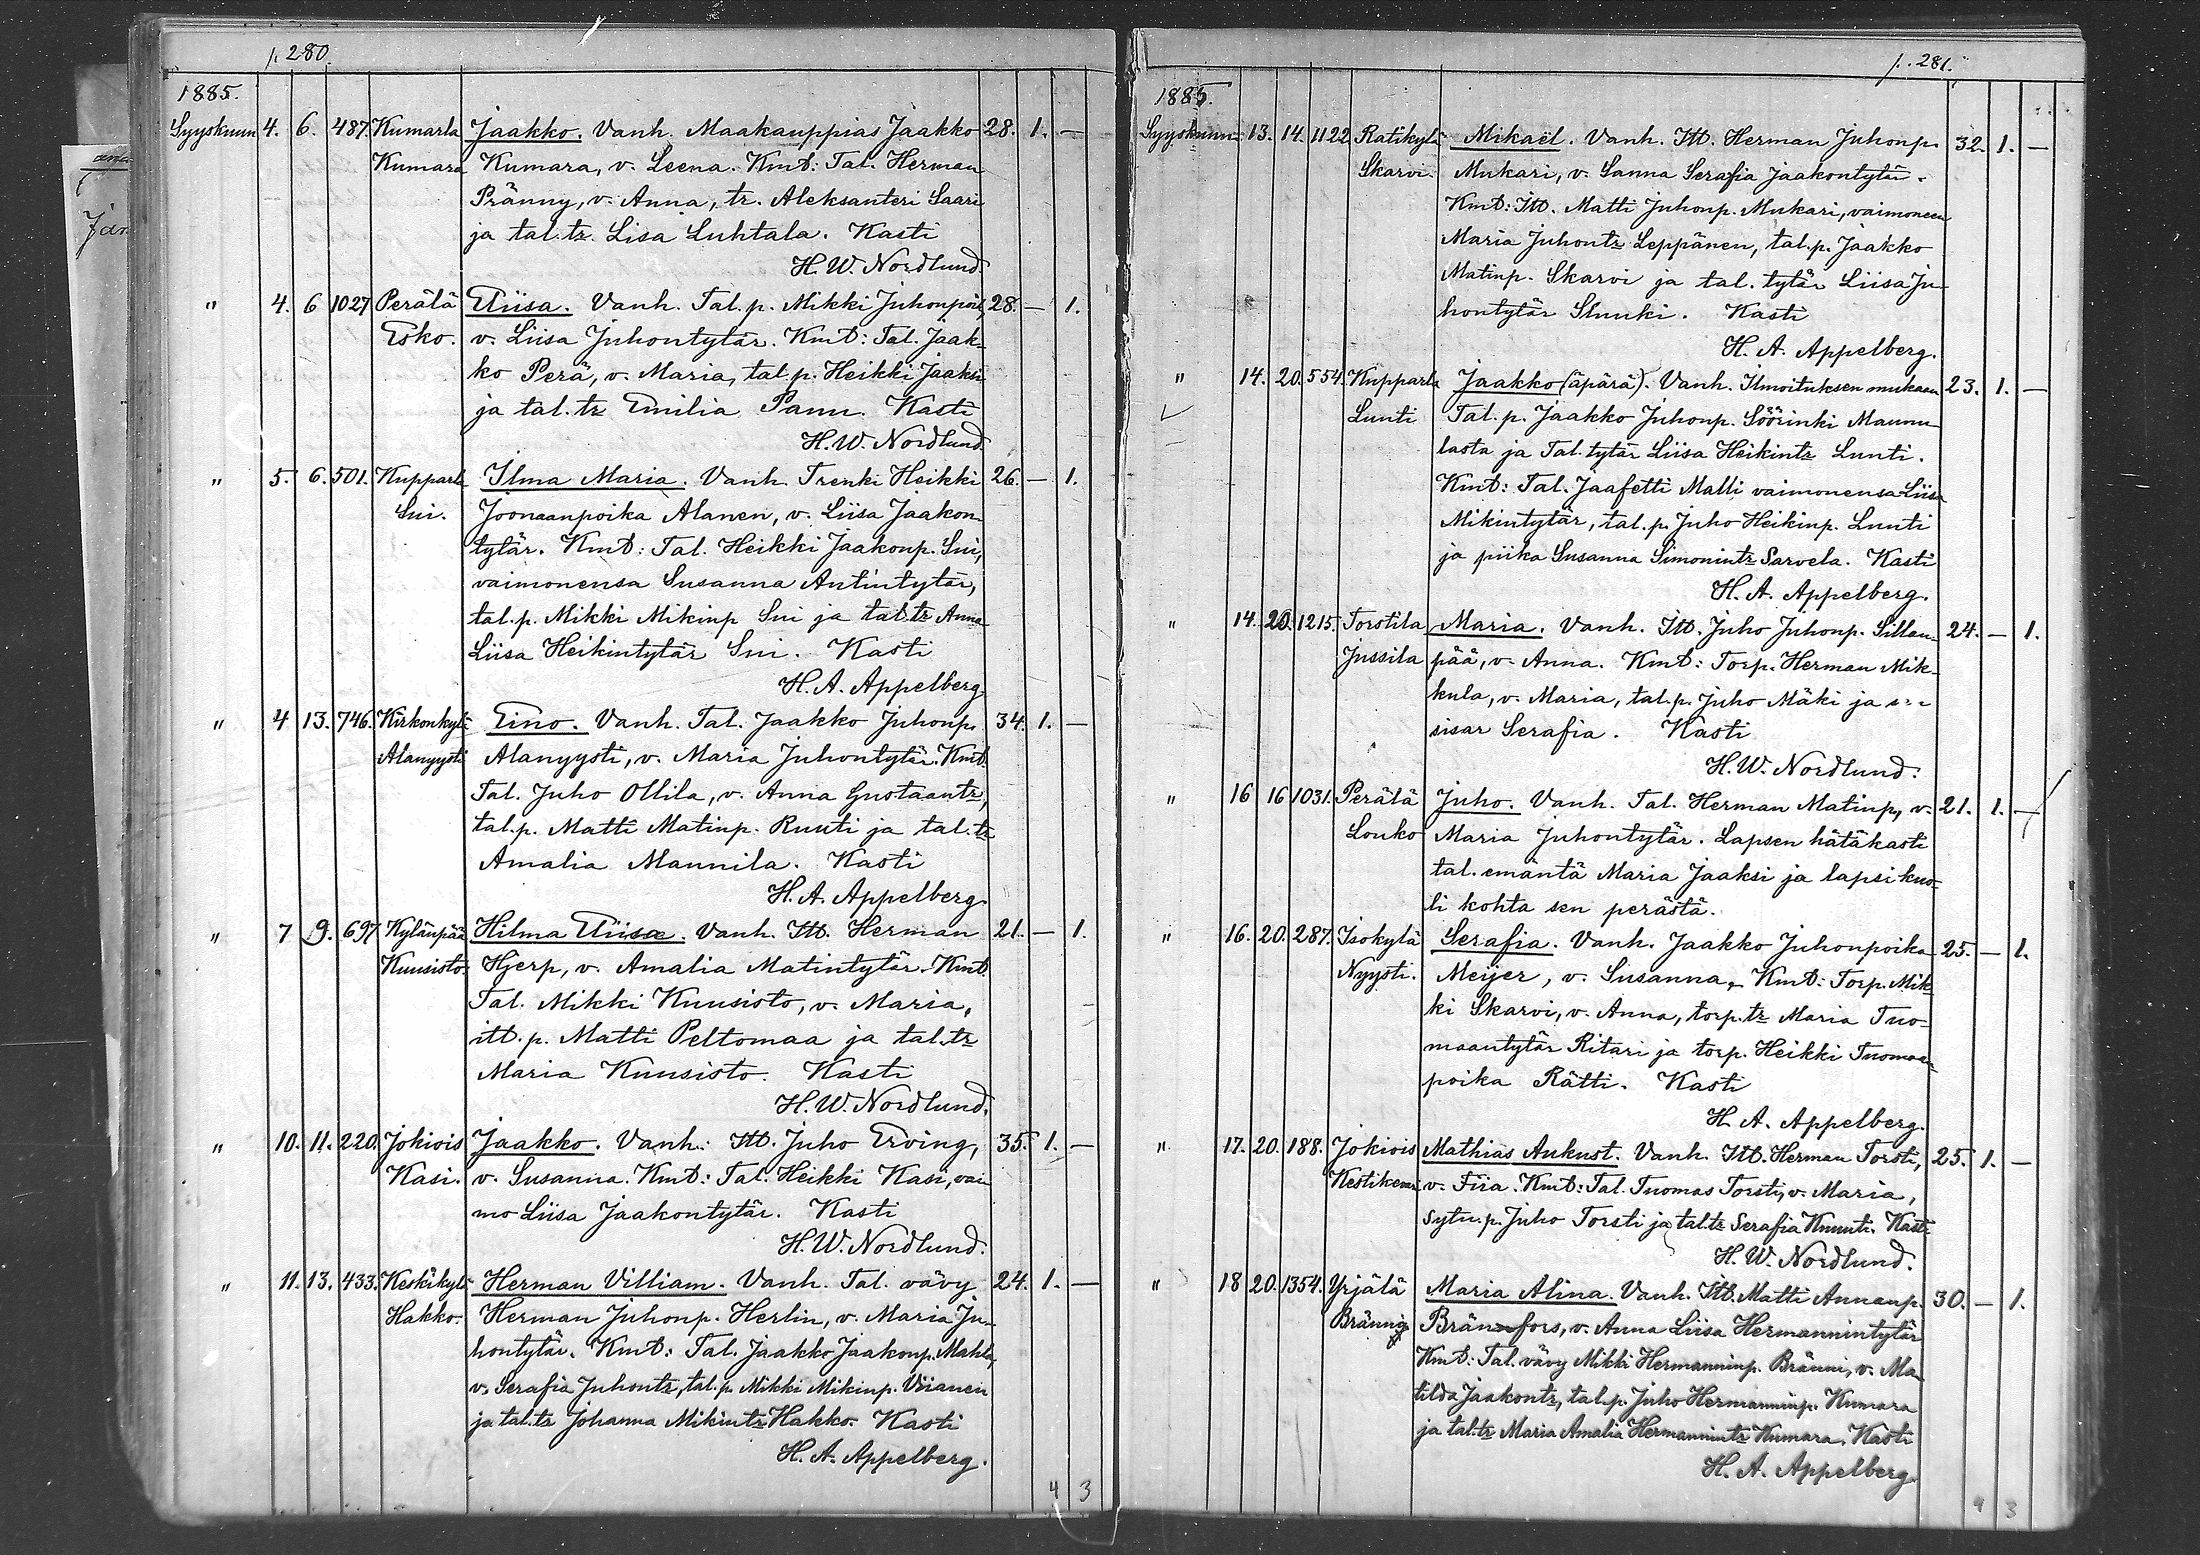 p. 280.
1885.
Syyskuun 4. 6. 487. Kumarla Jaakko. Vanh. Maakauppias Jaakko 28. 1. —
Kumara Kumara, v. Leena. Kmt: Tal. Herman
Pränny, v. Anna, tr. Aleksanteri Saari
ja tal.tr. Lisa Luhtala. Kasti
H. W. Nordlund.
" 4. 6 1027 Perälä Tiisa. Vanh. Tal. p. Mikki Juhonpoik 28. — 1.
Esko. v. Liisa Juhontytär. Kmt: Tal. Jaak-
ko Perä, v. Maria, tal. p. Heikki Jaaksi
ja tal. tr Emilia Panu. Kasti
H. W. Nordlund
" 5. 6. 501. Kupparla Ilma Maria. Vanh. Trenki Heikki 26. — 1.
Sui. Joonaanpoika Alanen, v. Liisa Jaakon-
tytär. Kmt: Tal. Heikki Jaakonp. Sui,
vaimonensa Susanna Antintytär,
tal. p. Mikki Mikinp Sui ja tal.tr Anna
Liisa Heikintytär Sui. Kasti
H. A. Appelberg.
" 4 13. 746. Kirkonkylä Eino. Vanh. Tal. Jaakko Juhonp. 34. 1. —
Alanyysti Alanyysti, v. Maria Juhontytär. Kmt.
Tal. Juho Ollila, v. Anna Gustaantr,
tal. p. Matti Matinp. Ruuti ja tal. tr
Amalia Mannila. Kasti
H. A. Appelberg.
" 7 9. 697 Kylänpää Hilma Tiisa. Vanh. Itt. Herman 21. — 1.
Kuusisto. Hjerp, v. Amalia Matintytär. Kmt.
Tal. Mikki Kuusisto, v. Maria,
itt. p. Matti Peltomaa ja tal.tr
Maria Kuusisto. Kasti
H. W. Nordlund.
" 10. 11. 220. Jokiois Jaakko. Vanh: Itt. Juho Erving, 35. 1. —
Kasi. v. Susanna. Kmt: Tal. Heikki Kasi, vai
mo Liisa Jaakontytär. Kasti
H. W. Nordlund.
" 11. 13. 433. Keskikylä Herman Villiam. Vanh. Tal. vävy 24. 1. —
Hakko. Herman Juhonp. Herlin, v. Maria Ju-
hontytär. Kmt: Tal. Jaakko Jaakonp. Mahla,
v. Serafia Juhontr, tal. p. Mikki Mikinp. Viianen
ja tal.tr Johanna Mikintr Hakko. Kasti
H. A. Appelberg.
4 3
p. 281.
1885.
Syyskuun 13. 14. 1122 Ratikylä Mikaël. Vanh. Itt. Herman Juhonp. 32. 1. —
Skarvi. Mukari, v. Sanna Serafia Jaakontytär.
Kmt: Itt. Matti Juhonp. Mukari, vaimoneen
Maria Juhontr Leppänen, tal. p. Jaakko
Matinp. Skarvi ja tal. tytär Liisa Ju-
hontytär Sluuki. Kasti
H. A. Appelberg.
" 14. 20. 554. Kupparla Jaakko (äpärä). Vanh. Ilmoituksen mukaan 23. 1. —
Lunti Tal. p. Jaakko Juhonp. Söörinki Maunu-
lasta ja Tal. tytär Liisa Heikintr Lunti.
Kmt: Tal. Jaafetti Malli vaimonensa Liisa
Mikintytär, tal. p. Juho Heikinp. Lunti
ja piika Susanna Simonintr Sarvela. Kasti
H. A. Appelberg.
" 14. 20. 1215. Torstila Maria. Vanh. Itt. Juho Juhonp. Sillan- 24. — 1.
Jussila pää, v. Anna. Kmt: Torp. Herman Mik-
kula, v. Maria, tal. p. Juho Mäki ja
sisar Serafia. Kasti
H. W. Nordlund.
" 16 16 1031. Perälä Juho. Vanh. Tal. Herman Matinp, v. 21. 1. —
Louko Maria Juhontytär. Lapsen hätäkasti
tal. emäntä Maria Jaaksi ja lapsi kuo-
li kohta sen perästä.
" 16. 20. 287. Isokylä Serafia. Vanh. Jaakko Juhonpoika 25. — 1.
Nyysti. Meijer, v. Susanna. Kmt: Torp. Mik-
ki Skarvi, v. Anna, torp. tr Maria Tuo-
maantytär Ritari ja torp. Heikki Tuomaan-
poika Rätti. Kasti
H. A. Appelberg.
" 17. 20. 188. Jokiois Mathias Aukust. Vanh. Itt. Herman Torsti, 25. 1. —
Kestikievari v. Fiia. Kmt: Tal. Tuomas Torsti, v. Maria,
sytn. p. Juho Torsti ja tal.tr Serafia Knuuti. Kasti
H. W. Nordlund.
" 18 20. 1354. Yrjälä Maria Alina. Vanh. Itt. Matti Annanp. 30. — 1.
Bränni Bränfors, v. Anna Liisa Hermannintytär
Kmt: Tal. vävy Mikki Hermanninp. Bränni, v. Ma
tilda Jaakontr, tal. p. Juho Hermanninp. Kumara
ja tal.tr Maria Amalia Hermannintr Kumara. Kasti
H. A. Appelberg.
4 3